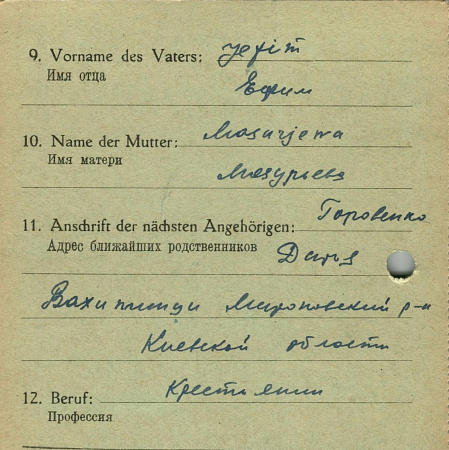 9. Vorname des Vaters: Jefim
Имя отца
Ефим
10. Name der Mutter: Masurjewa
Имя матери
Мазурьева
11. Anschrift der nächsten Angehörigen: Горовенко
Адрес ближайших родственников Дарья
Мироновский р-н
Киевской области
12. Beruf: Крестьянин
Профессия